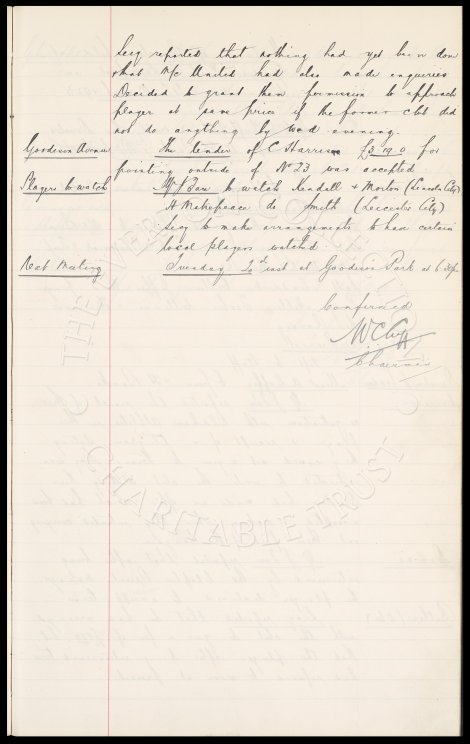 Secy reported that nothing had yet been done
& that M/c United had also made enquiries
Decided to grant them permission to approach
player at same price if the former club did
not do anything by Wed evening.
Goodison Avenue The tender of C Harrison £3.19.0 for
painting outside of No 23 was accepted
Players to watch Mr Baxr to watch Kendall & Morton (Lincoln City)
H Makepeace do Smith (Leicester City)
Secy to make arrangements to have certain
local players watched.
Next Meeting Tuesday 2nd inst at Goodison Park at 6.30pm
Confirmed
W C Cuff
Chairman
THE EVERTON COLLECTION
CHARITABLE TRUST